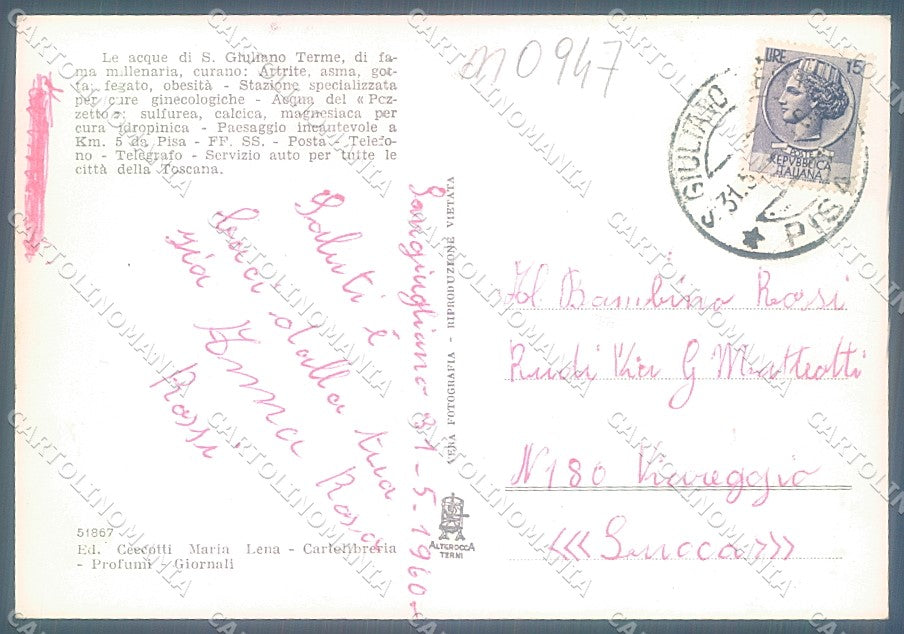 Le acque di S. Giuliano Terme, di fa-
ma millenaria, curano: Artrite, asma, got-
ta, fegato, obesità - Stazione specializzata
per cure ginecologiche - Acqua del « Poz-
zetto »: sulfurea, calcica, magnesiaca per
cura idropinica - Paesaggio incantevole a
Km. 5 da Pisa - FF. SS. - Posta - Telefo-
no - Telegrafo - Servizio auto per tutte le
città della Toscana.
0947
LIRE 15
POSTE
REPVBBLICA
ITALIANA
S. GIULIANO
31.5
PISA
Sangiugliano 31-5-1960-
Saluti è
baci dalla tua
zia Anna Rosa
Rossi
VERA FOTOGRAFIA - RIPRODUZIONE VIETATA
Al Bambino Rosi
Rudi Via G Matteotti
N 180 Viareggio
<<<Lucca>>>
ALTEROCCA
TERNI
51867
Ed. Ceccotti Maria Lena - Cartolibreria
- Profumi - Giornali
CARTOLINOMANIA